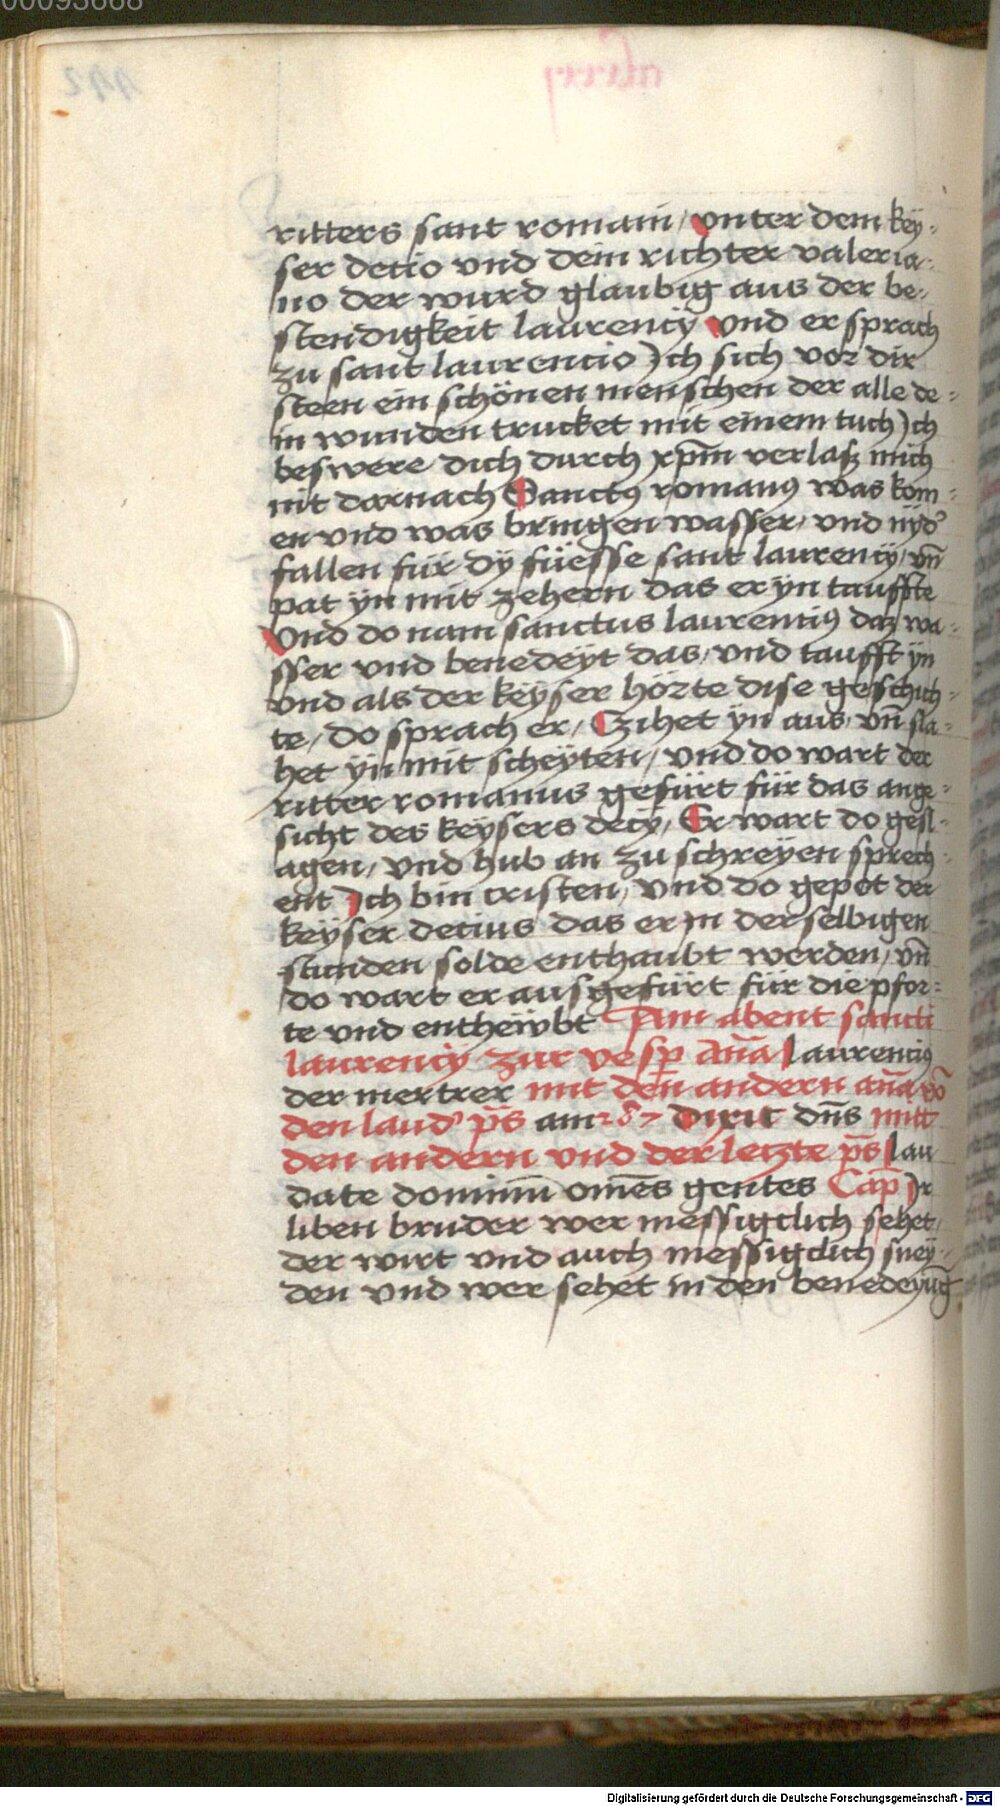 00093668
ritters sant romani / vnter dem key-
ser decio vnd dem richter valeria-
no der wurd glaubig aus der be-
stendigkeit laurency vnd er sprach
zu sant laurencio Ich sich vor dir
steen ein schönen menschen der alle de-
in wunden trucket mit einem tuch Ich
beswere dich durch xp̄m verlasz mich
nit darnach Sanctꝰ romanꝰ was kom-
en vnd was bringen wasser / vnd nyd'
fallen für dÿ füesse sant laurency / vn̄
pat ÿn mit zehern das er ÿn tauffte
Vnd do nam sanctus laurentiꝰ daz wa-
sser vnd benedeÿt das / vnd taufft ÿn
vnd als der keÿser hörte dise geschich-
te / do sprach er / Czihet ÿn aus / vn̄ sla-
het ÿn mit scheÿten / vnd do wart der
ritter romanus gefürt für das ange-
sicht des keÿsers decÿ / Er wart do gesl-
agen / vnd hub an zu schreÿen sprech-
ent Ich bin cristen / vnd do gepot der
keÿser decius das er in der selbigen
stunden solde enthaubt werden / vn̄
do wart er ausgefürt für die pfor-
te vnd entheübt Am abent sancti
laurencÿ zur vesꝑ an̄a laurenciꝰ
der mertrer mit den andern an̄a vō
den laud' p̄s am Dixit dn̄s mitt
den andern vnd der letzte p̄s lau
date dominū om̄es gentes Cap̄ Ir
liben bruder wer messigclich sehet /
der wirt vnd auch messigclich sneÿ-
den vnd wer sehet in den benedeyūg
Digitalisierung gefördert durch die Deutsche Forschungsgemeinschaft - DFG